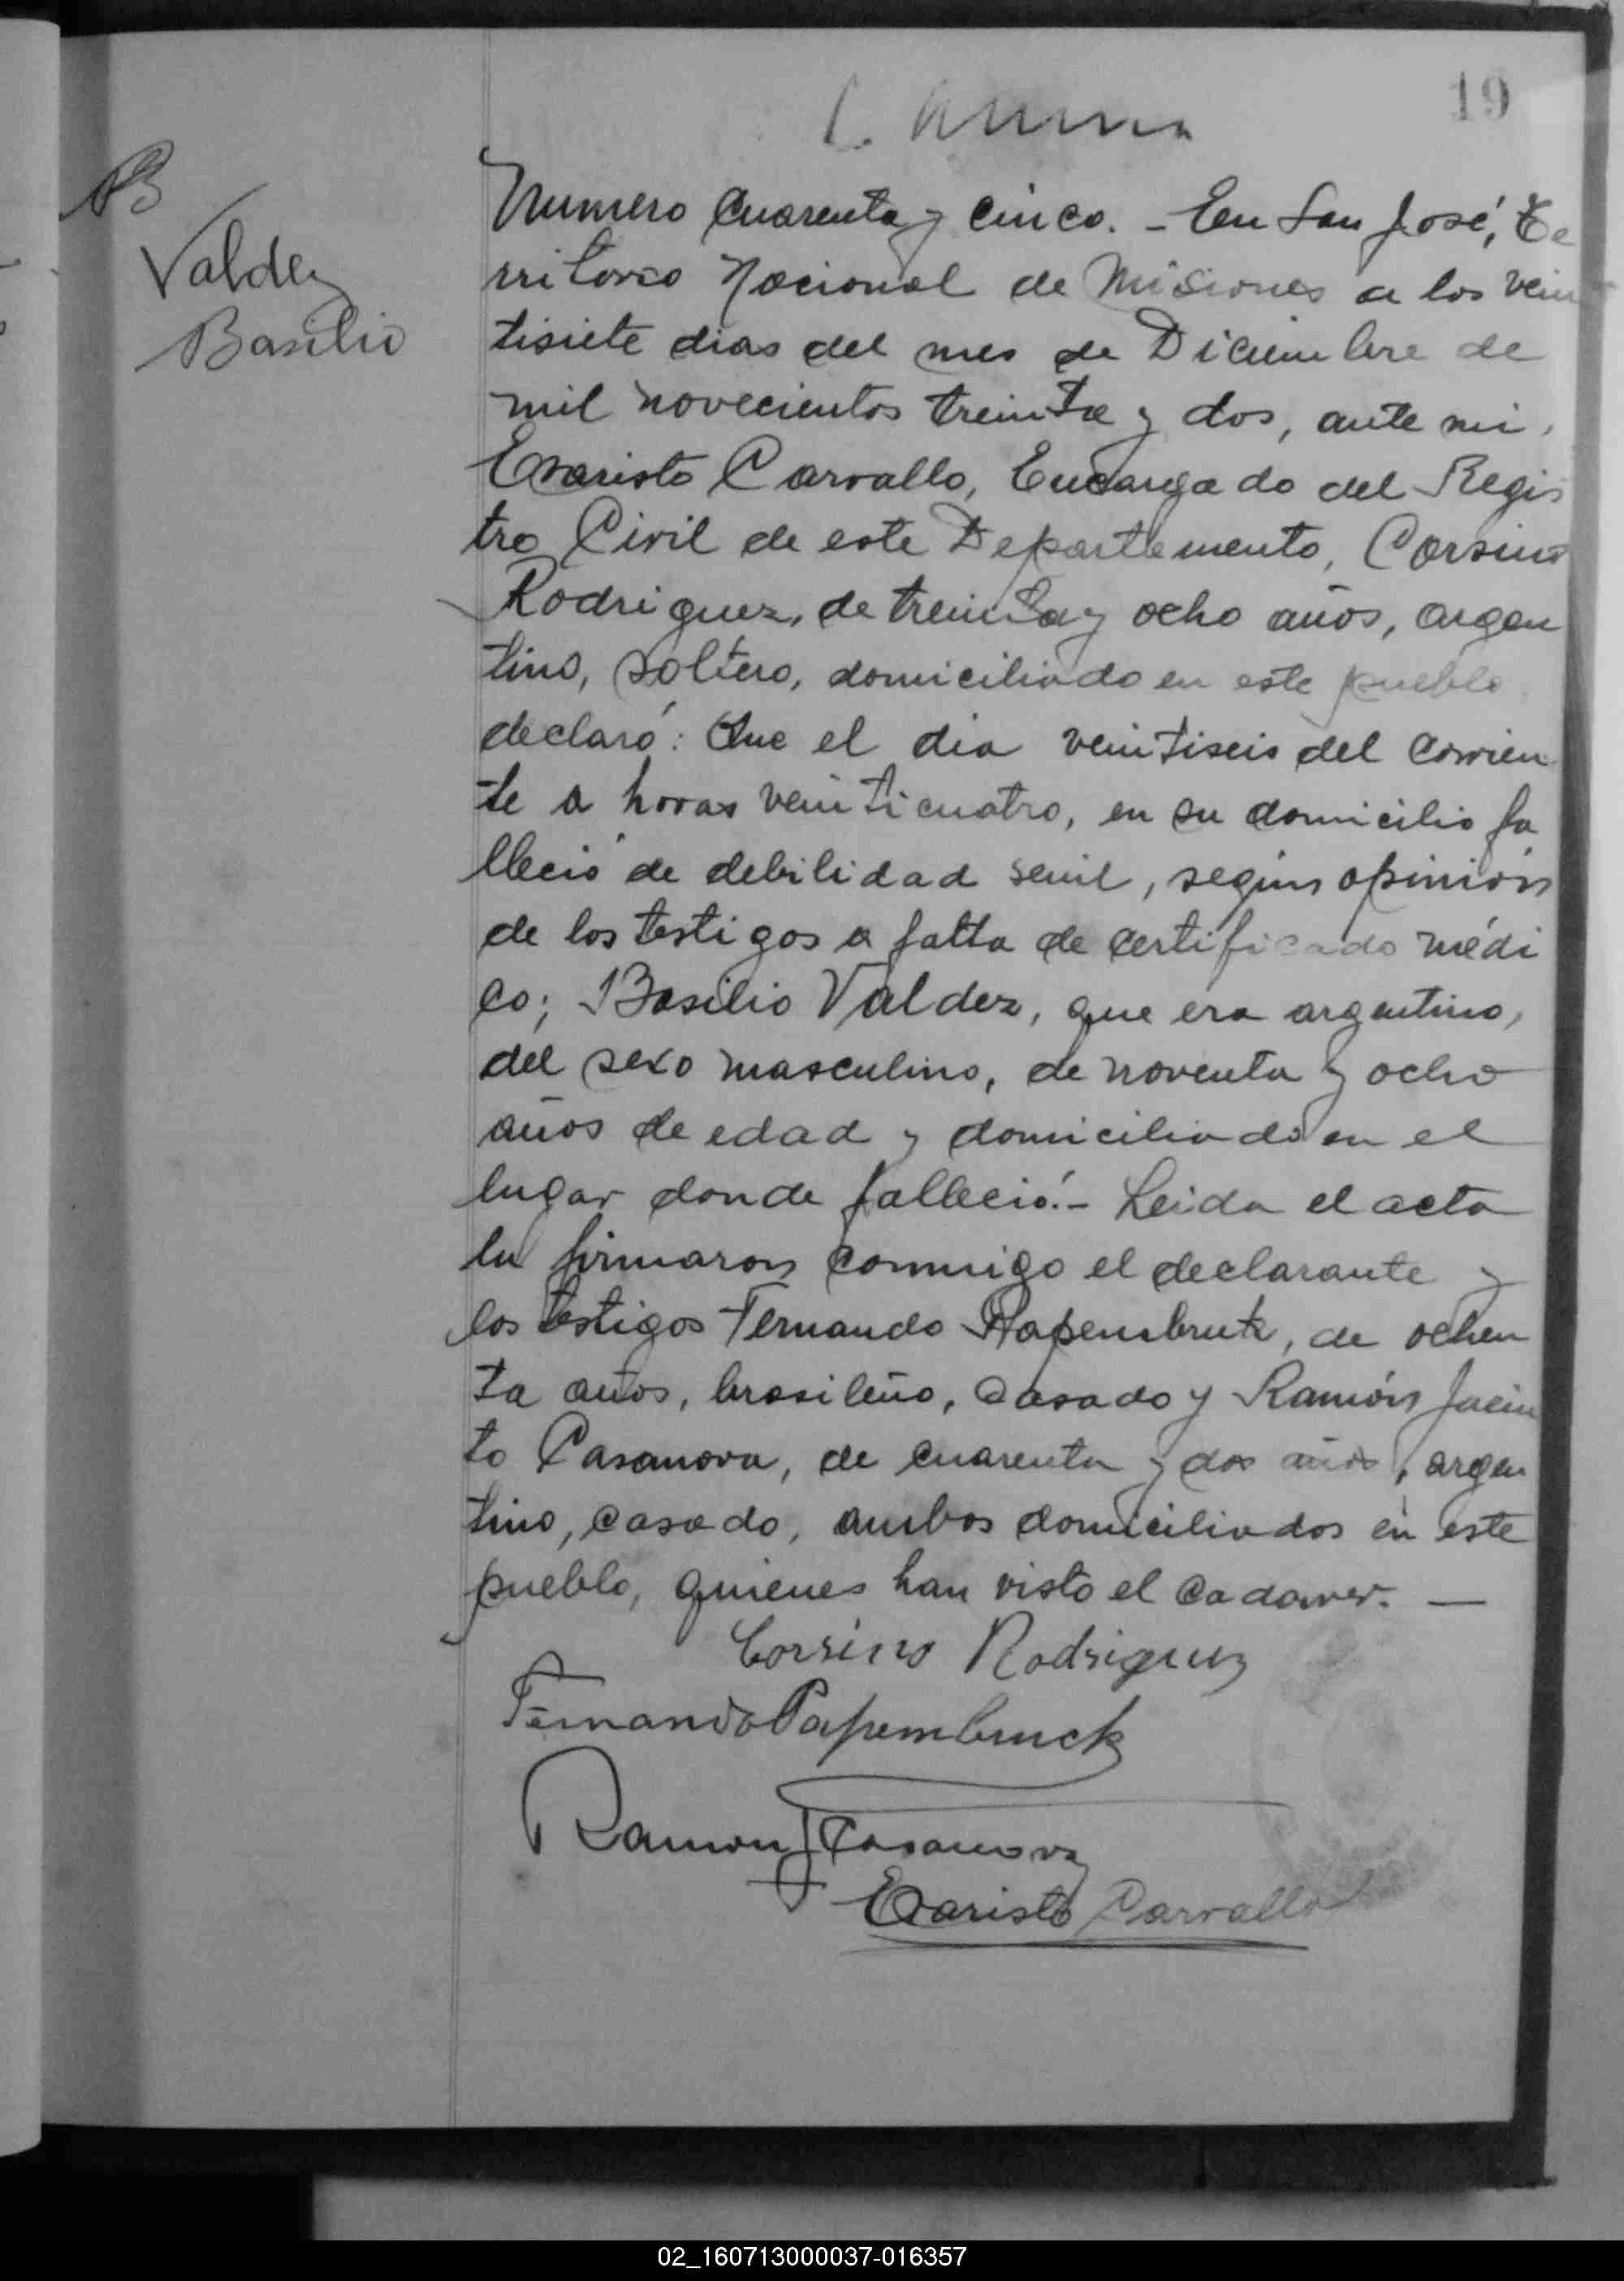 19
Valdez
Basilio
Numero cuarenta y cinco. - En San José, Te
rritorio Nacional de Misiones a los vein
tisiete dias del mes de Diciembre de
mil novecientos treinta y dos, ante mi,
Evaristo Carvallo, Encargado del Regis
tro Civil de este Departamento, Corsino
Rodriguez, de treinta y ocho años, argen
tino, soltero, domiciliado en este pueblo
declaró: Que el dia veintiseis del corrien
te a horas veinticuatro, en su domicilio fa
lleció de debilidad senil, según opinión
de los testigos a falta de certificado médi
co; Basilio Valdez, que era argentino,
del sexo masculino, de noventa y ocho
años de edad y domiciliado en el
lugar donde falleció.- Leida el acta
la firmaron conmigo el declarante y
los testigos Fernando Papembruk, de ochen
ta años, brasileño, casado y Ramón Jacin
to Casanova, de cuarenta y dos años, argen
tino, casado, ambos domiciliados en este
pueblo, quienes han visto el cadaver. —
Corsino Rodriguez
Fernando Papembruck
Ramon J Casanova
Evaristo Carvallo
02_160713000037-016357